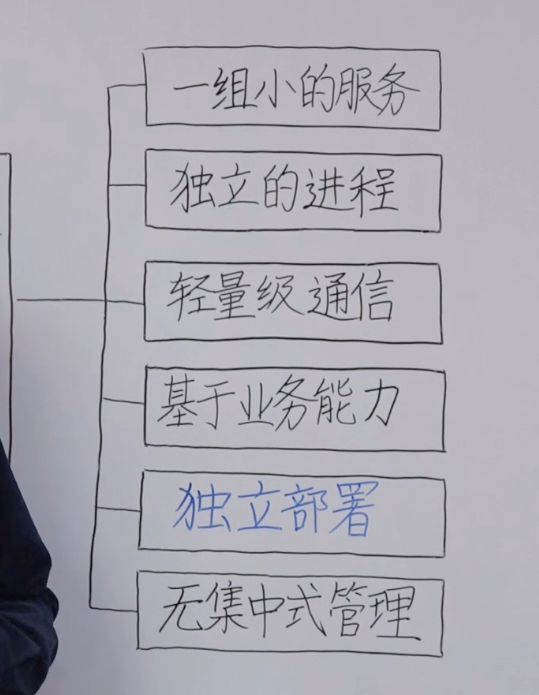 一组小的服务
独立的进程
轻量级通信
基于业务能力
独立部署
无集中式管理